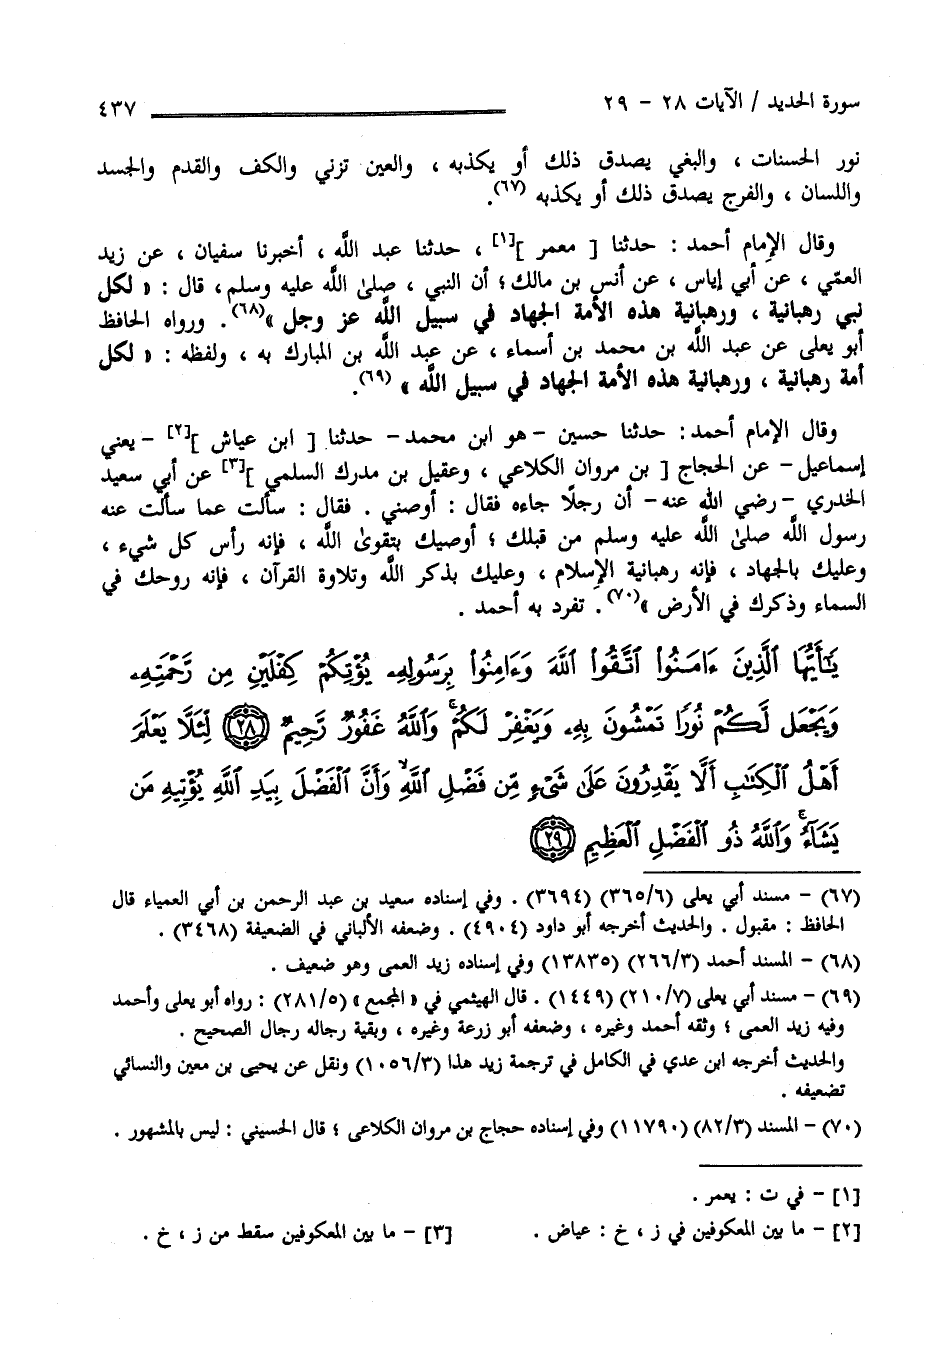 سورة الحديد / الآيات ٢٨ - ٢٩ ٤٣٧
نور الحسنات ، والبغي يصدق ذلك أو يكذبه ، والعين تزني والكف والقدم والجسد
واللسان ، والفرج يصدق ذلك أو يكذبه (٦٧).
وقال الإمام أحمد : حدثنا [ معمر ][١] ، حدثنا عبد الله ، أخبرنا سفيان ، عن زيد
العمّي ، عن أبي إياس ، عن أنس بن مالك؛ أن النبي ، صلىٰ الله عليه وسلم، قال : « لكل
نبي رهبانية ، ورهبانية هذه الأمة الجهاد في سبيل الله عز وجل »(٦٨). ورواه الحافظ
أبو يعلى عن عبد الله بن محمد بن أسماء ، عن عبد الله بن المبارك به ، ولفظه : « لكل
أمة رهبانية ، ورهبانية هذه الأمة الجهاد في سبيل الله » (٦٩).
وقال الإمام أحمد : حدثنا حسين - هو ابن محمد- حدثنا [ ابن عياش ][٢] -يعني
إسماعيل - عن الحجاج [ بن مروان الكلاعي ، وعقيل بن مدرك السلمي ][٣] عن أبي سعيد
الخدري -رضي الله عنه- أن رجلًا جاءه فقال : أوصني . فقال : سألت عما سألت عنه
رسول الله صلىٰ الله عليه وسلم من قبلك ؛ أوصيك بتقوىٰ الله ، فإنه رأس كل شيء ،
وعليك بالجهاد ، فإنه رهبانية الإسلام ، وعليك بذكر الله وتلاوة القرآن ، فإنه روحك في
السماء وذكرك في الأرض »(٧٠). تفرد به أحمد .
يَٰٓأَيُّهَا ٱلَّذِينَ ءَامَنُوا۟ ٱتَّقُوا۟ ٱللَّهَ وَءَامِنُوا۟ بِرَسُولِهِۦ يُؤْتِكُمْ كِفْلَيْنِ مِن رَّحْمَتِهِۦ
وَيَجْعَل لَّكُمْ نُورًا تَمْشُونَ بِهِۦ وَيَغْفِرْ لَكُمْ ۚ وَٱللَّهُ غَفُورٌ رَّحِيمٌ ٢٨ لِّئَلَّا يَعْلَمَ
أَهْلُ ٱلْكِتَٰبِ أَلَّا يَقْدِرُونَ عَلَىٰ شَىْءٍ مِّن فَضْلِ ٱللَّهِ ۙ وَأَنَّ ٱلْفَضْلَ بِيَدِ ٱللَّهِ يُؤْتِيهِ مَن
يَشَآءُ ۚ وَٱللَّهُ ذُو ٱلْفَضْلِ ٱلْعَظِيمِ ٢٩
(٦٧) - مسند أبي يعلى (٣٦٥/٦) (٣٦٩٤) . وفي إسناده سعيد بن عبد الرحمن بن أبي العمياء قال
الحافظ : مقبول . والحديث أخرجه أبو داود (٤٩٠٤) . وضعفه الألباني في الضعيفة (٣٤٦٨) .
(٦٨) - المسند أحمد (٢٦٦/٣) (١٣٨٣٥) وفي إسناده زيد العمى وهو ضعيف .
(٦٩) - مسند أبي يعلى (٢١٠/٧) (١٤٤٩) . قال الهيثمي في « المجمع » (٢٨١/٥) : رواه أبو يعلى وأحمد
وفيه زيد العمى ؛ وثقه أحمد وغيره ، وضعفه أبو زرعة وغيره ، وبقية رجاله رجال الصحيح .
والحديث أخرجه ابن عدي في الكامل في ترجمة زيد هذا (١٠٥٦/٣) ونقل عن يحيى بن معين والنسائي
تضعيفه .
(٧٠) - المسند (٨٢/٣) (١١٧٩٠) وفي إسناده حجاج بن مروان الكلاعى ؛ قال الحسيني : ليس بالمشهور .
[١] - في ت : يعمر .
[٢] - ما بين المعكوفين في ز ، خ : عياض . [٣] - ما بين المعكوفين سقط من ز ، خ .